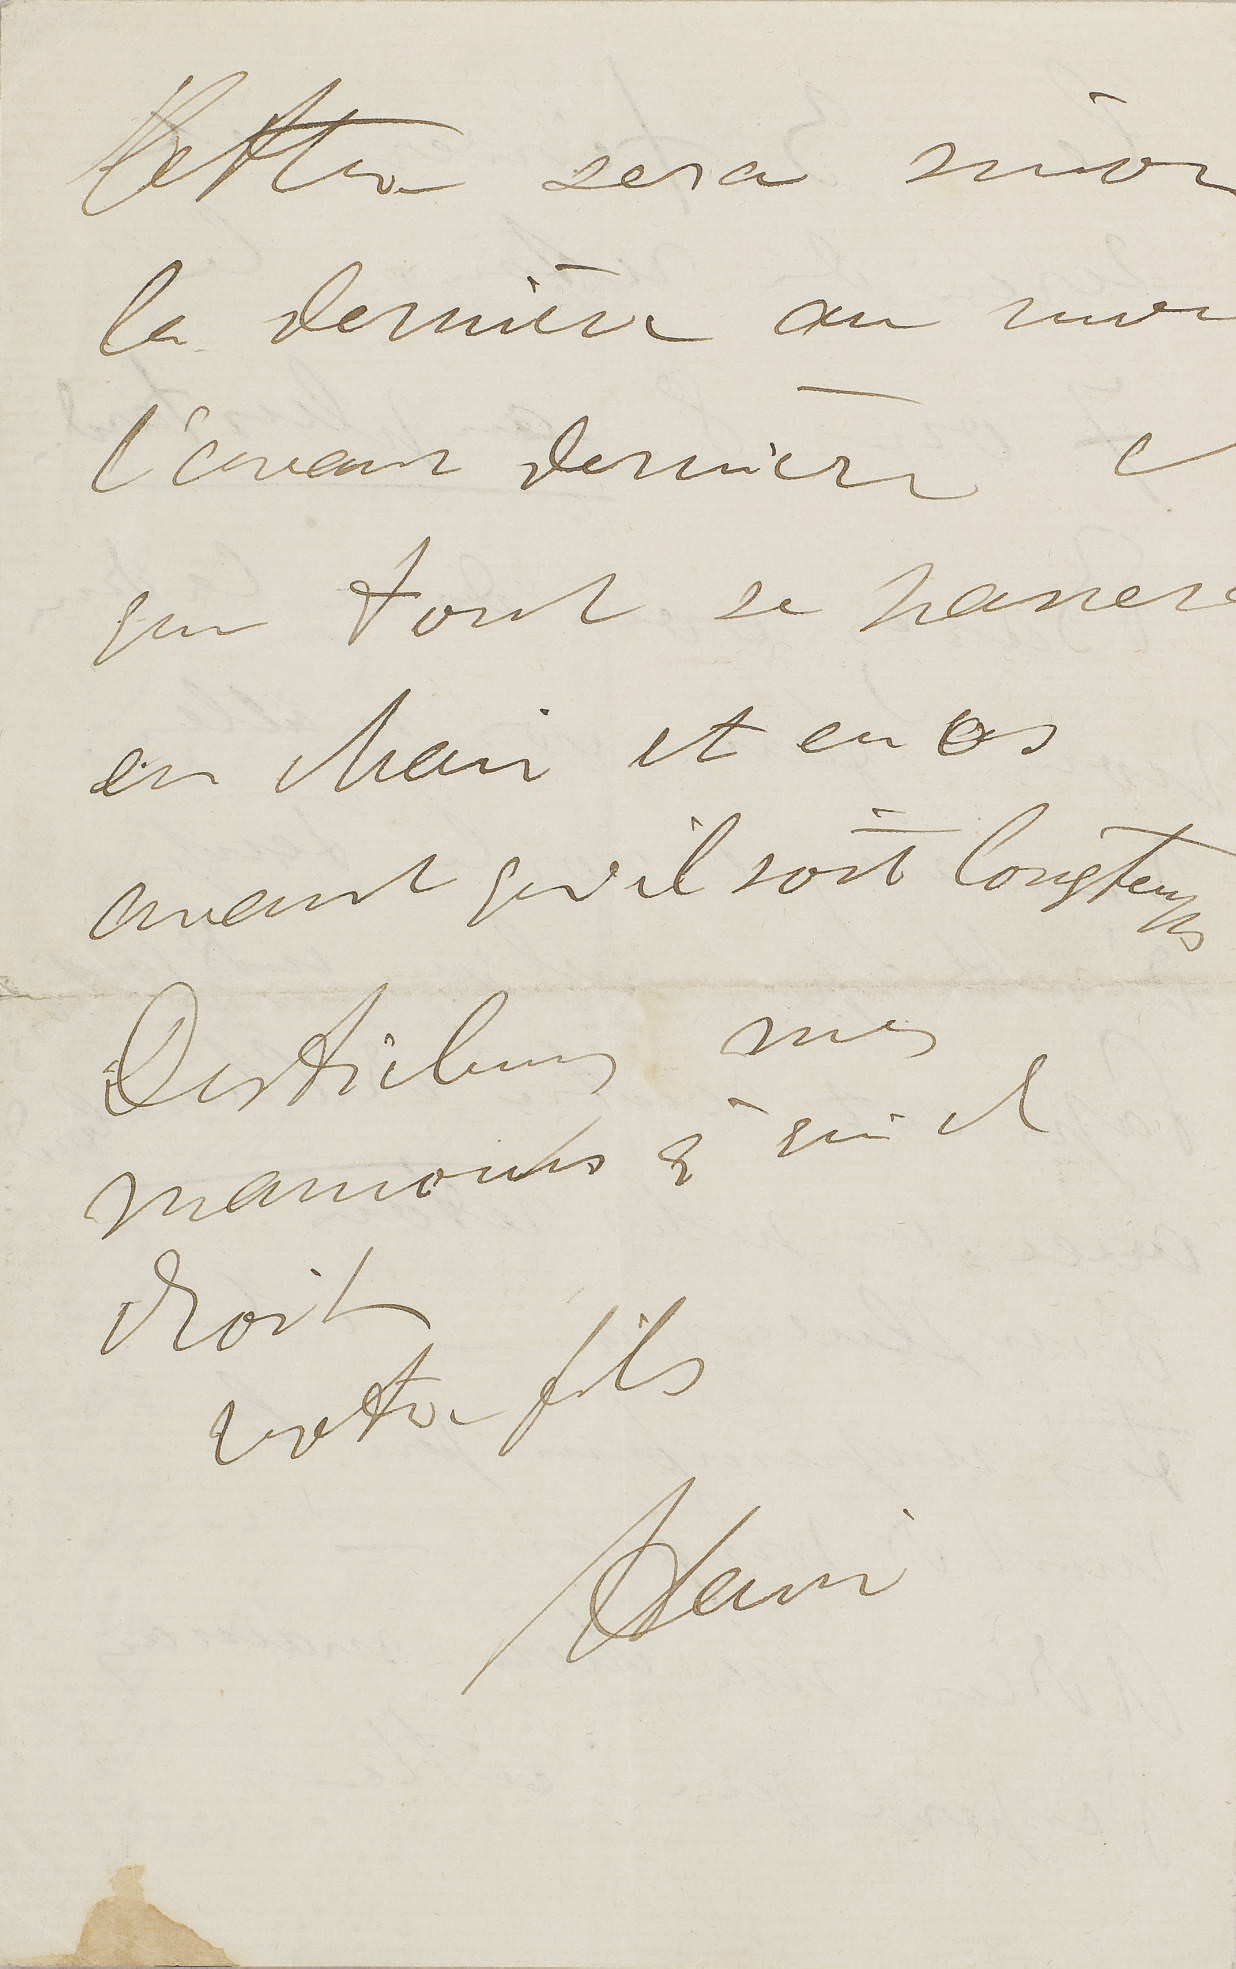 lettre sera sinon
la dernière au moin
l'avant dernière et
que tout se passera
en chair et en os
avant qu'il soit longtemps
Distribuez mes
mamours à qui de
droit
votre fils
Henri